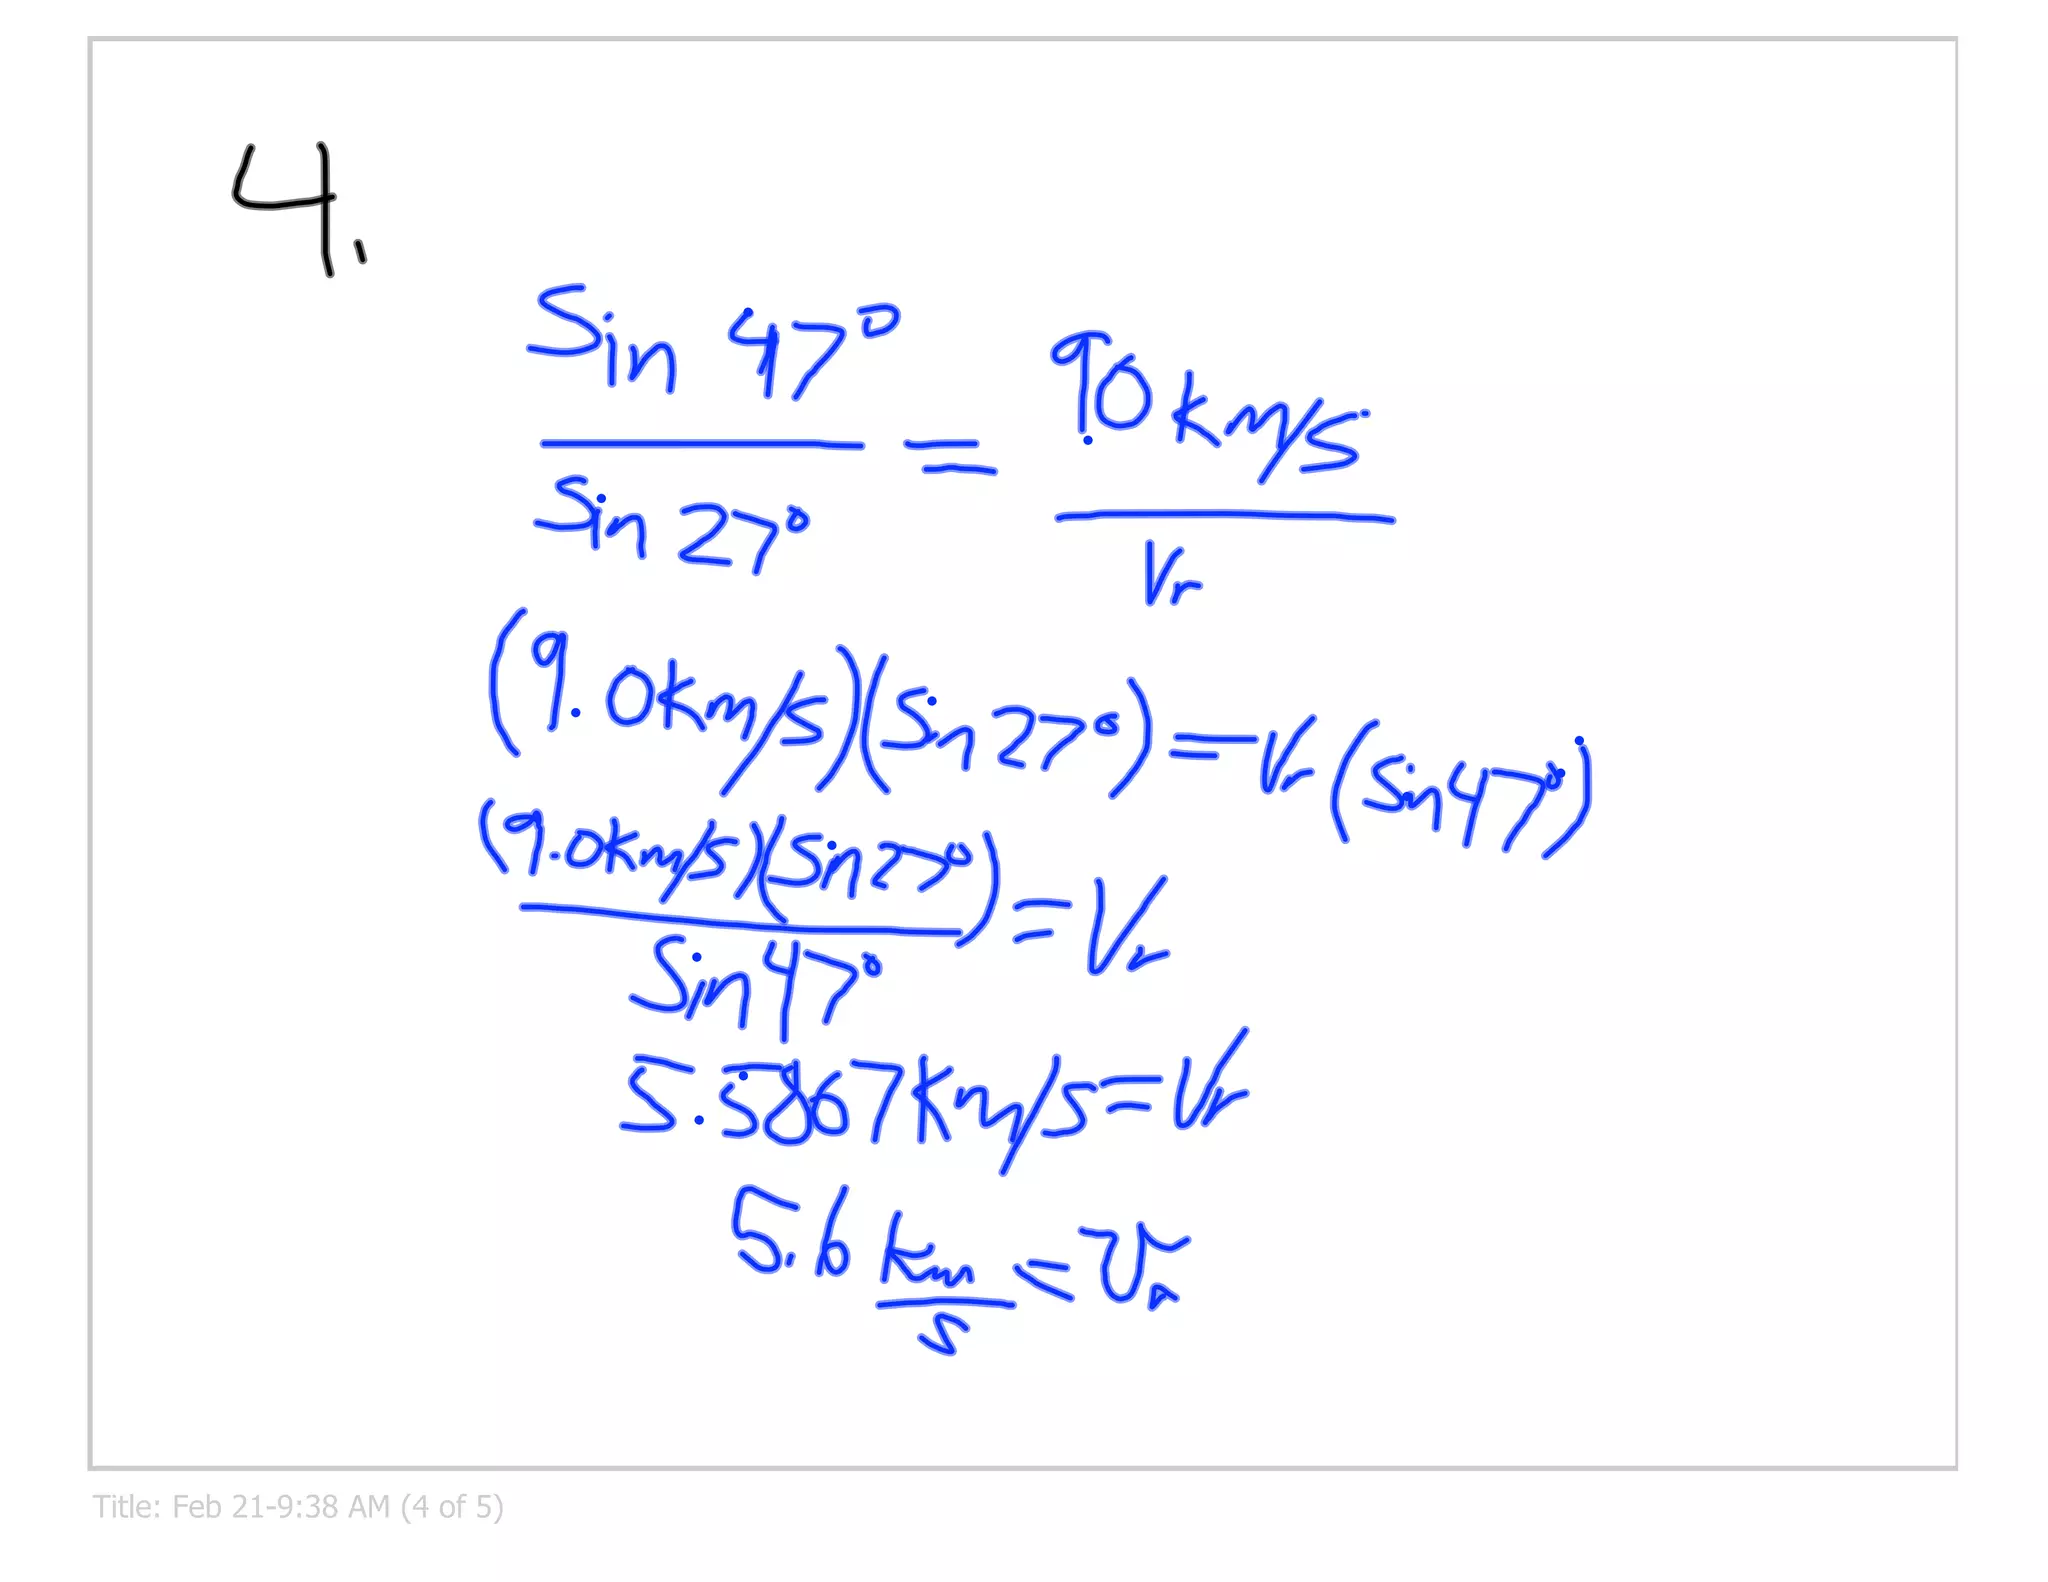 4.
Sin 47° / Sin 27° = 9.0 km/s / Vr
(9.0km/s)(Sin 27°) = Vr (Sin 47°)
(9.0km/s)(Sin 27°) / Sin 47° = Vr
5.5867 km/s = Vr
5.6 km/s = Vr
Title: Feb 21-9:38 AM (4 of 5)